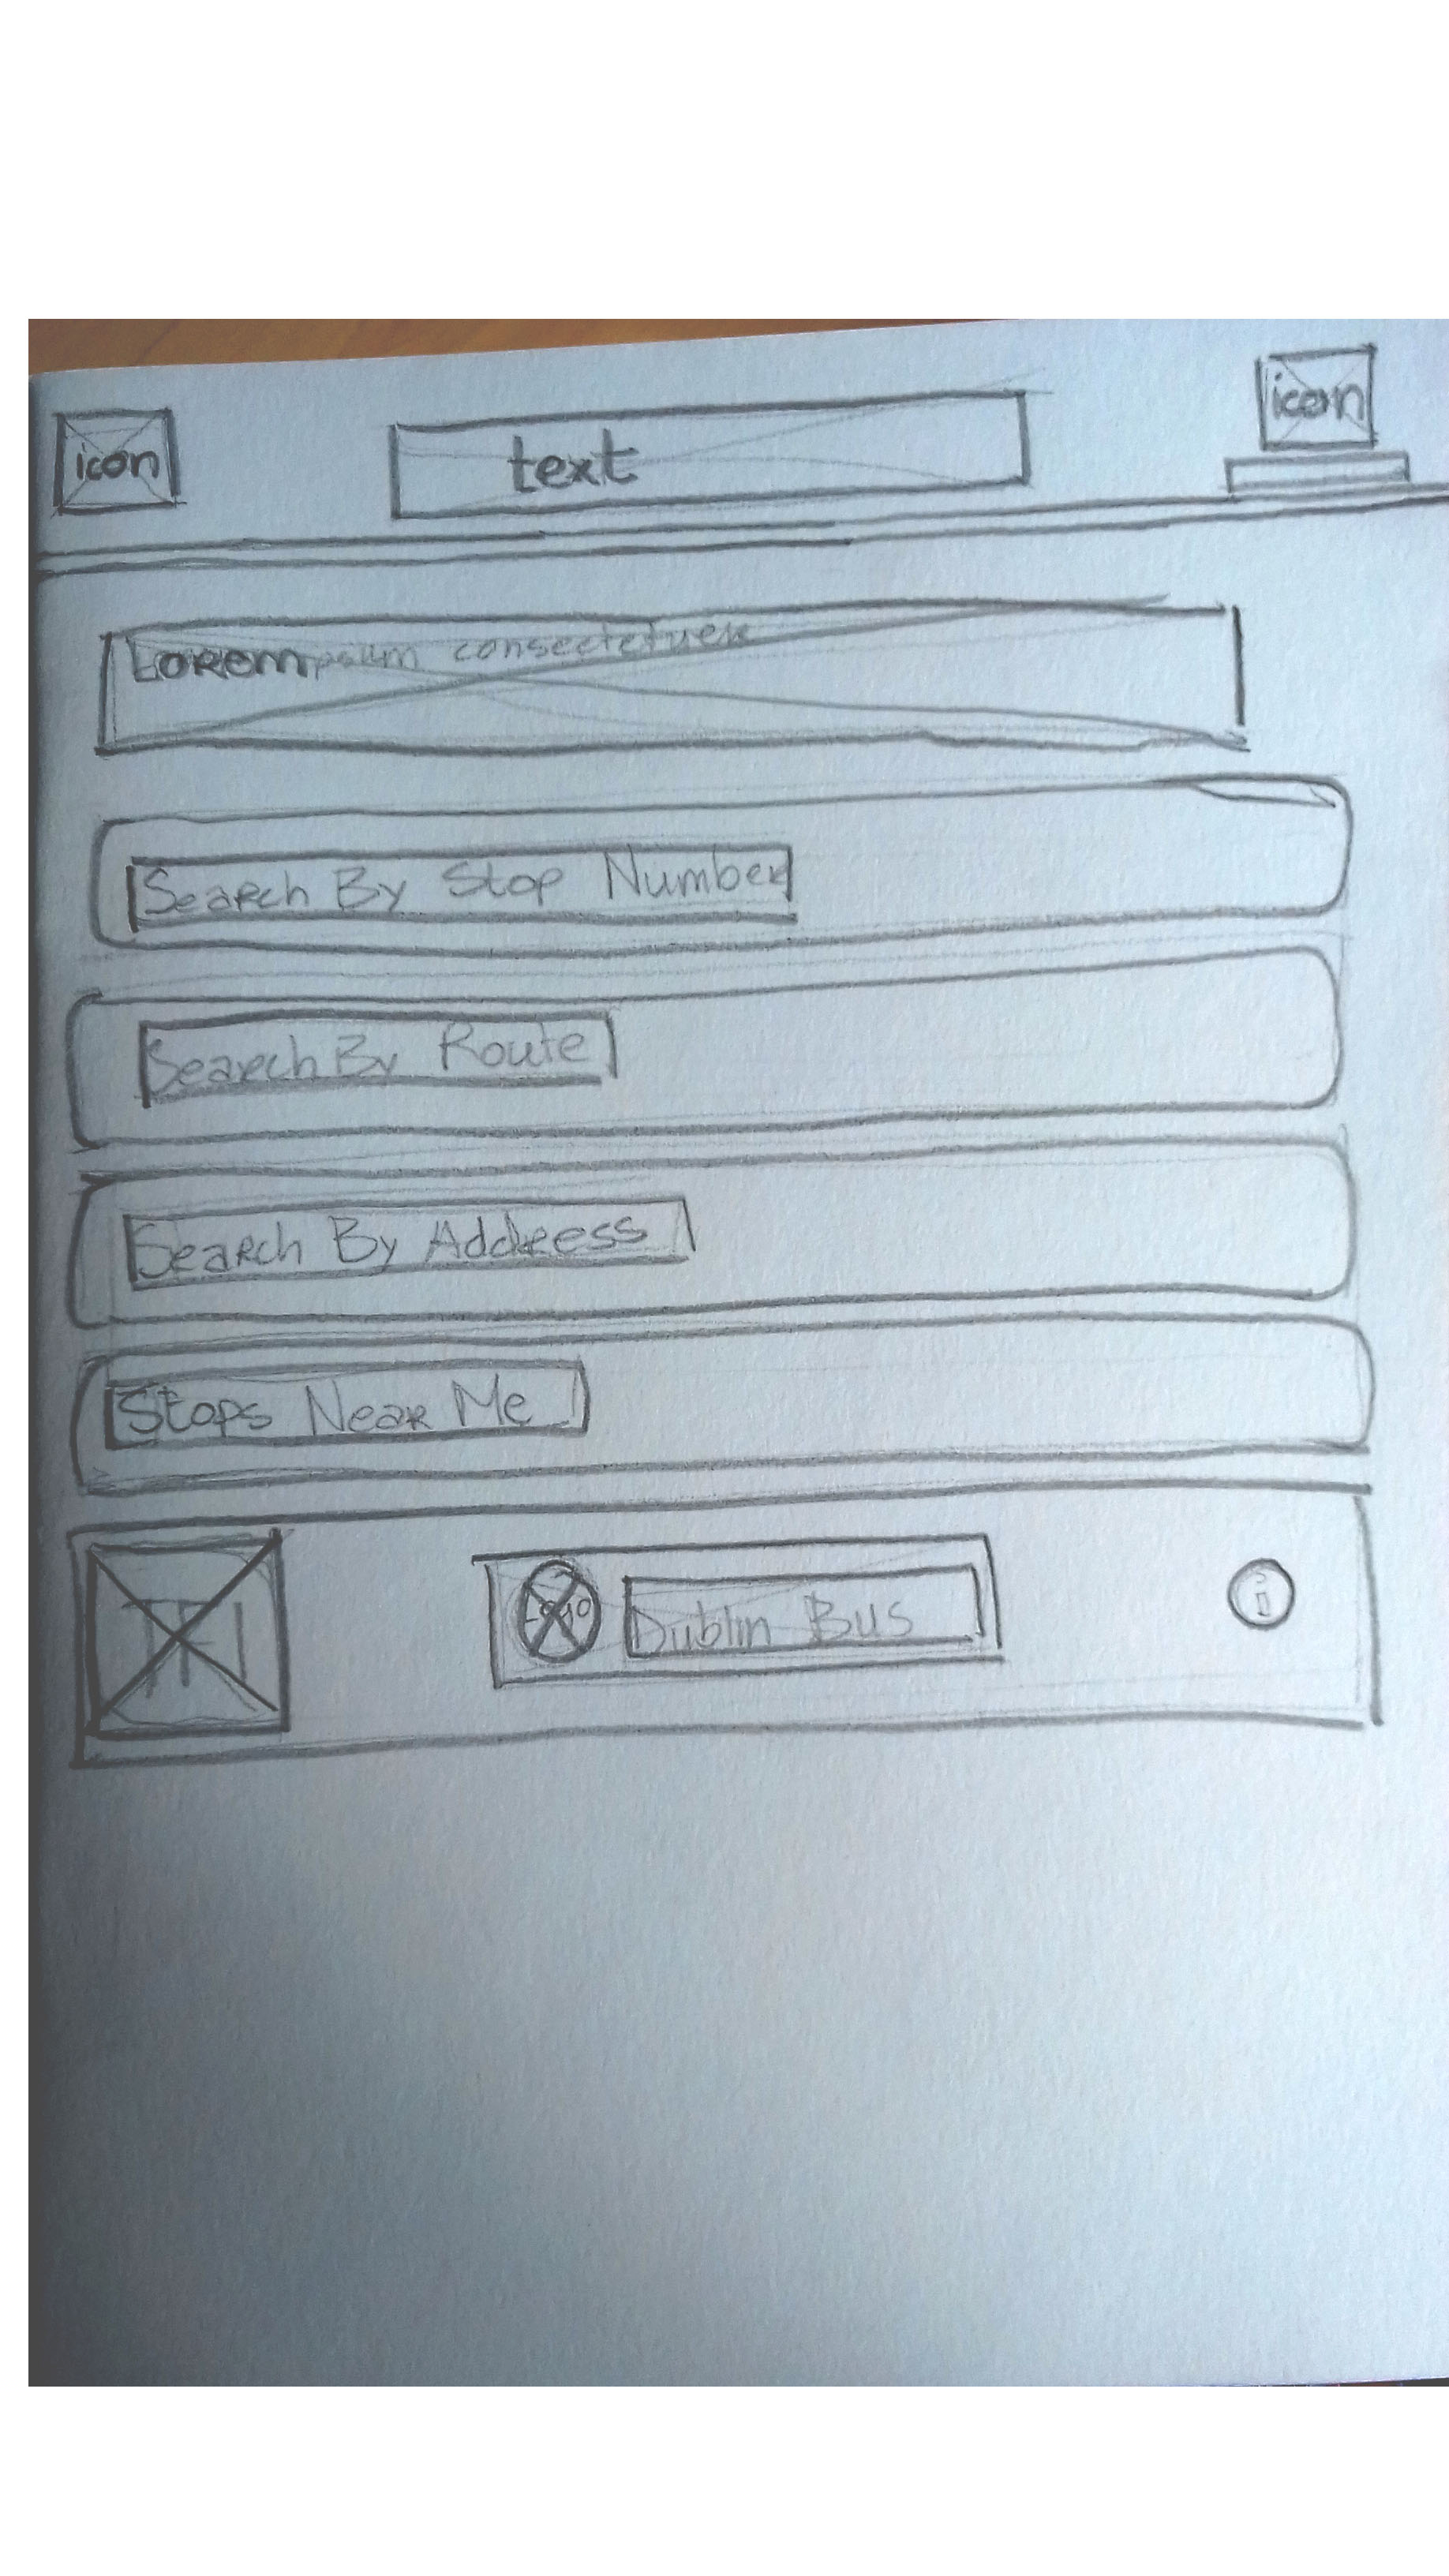 icon
text
icon
Lorem ipsum consectetuer
Search By Stop Number
Search By Route
Search By Address
Stops Near Me
TFI
Logo
Dublin Bus
i